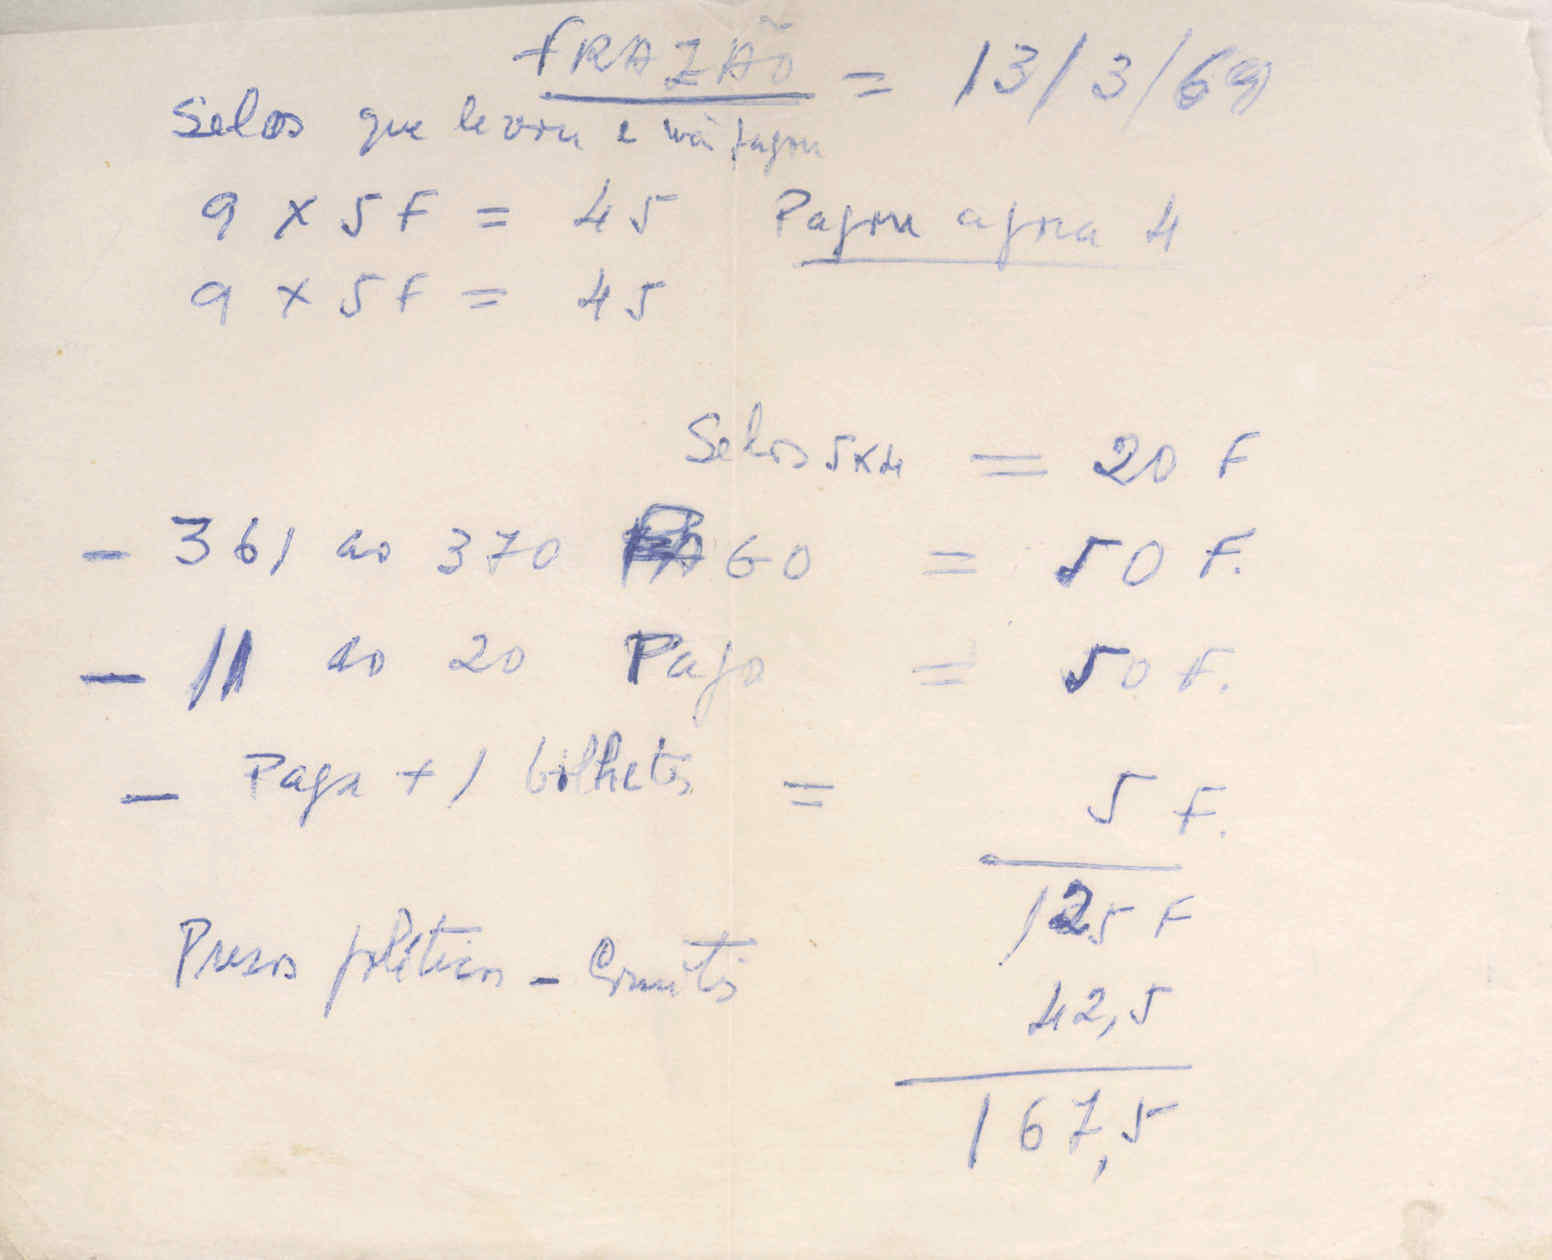 FRAZÃO = 13/3/69
Selos que levou e não pagou
9 x 5 F = 45 Pagou agora 4
9 x 5 F = 45
Selos 5x4 = 20 F
- 361 ao 370 PAGO = 50 F.
- 11 ao 20 Pago = 50 F.
- Paga + 1 bilhetes = 5 F.
125 F
Presos políticos - Comités
42,5
167,5